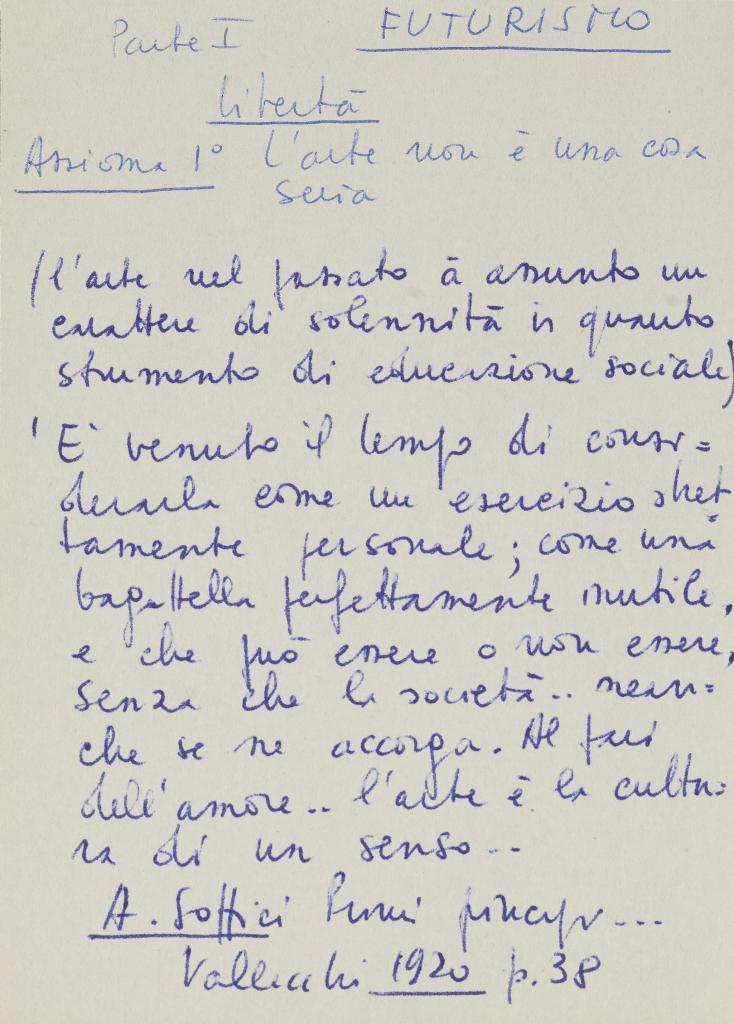 Parte I FUTURISMO
libertà
Assioma 1° l'arte non è una cosa
seria
(l'arte nel passato à assunto un
carattere di solennità in quanto
strumento di educazione sociale)
' E' venuto il tempo di consi=
derarla come un esercizio stret
tamente personale; come una
bagattella perfettamente inutile,
e che può essere o non essere,
senza che la società.. nean=
che se ne accorga. Al pari
dell'amore.. l'arte è la cultu=
ra di un senso...
A. Soffici Primi principi...
Vallecchi 1920 p. 38